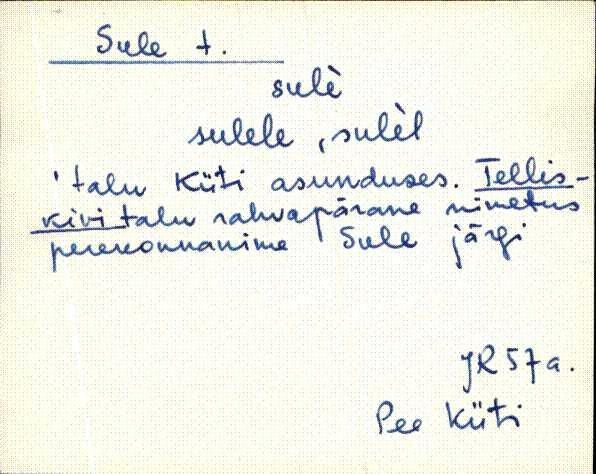 Sule t.
sulè
sulele, sulèl
'talu Küti asunduses. Tellis-
kivi talu rahvapärane nimetus
perekonnanime Sule järgi
JR 57a.
Pee Küti